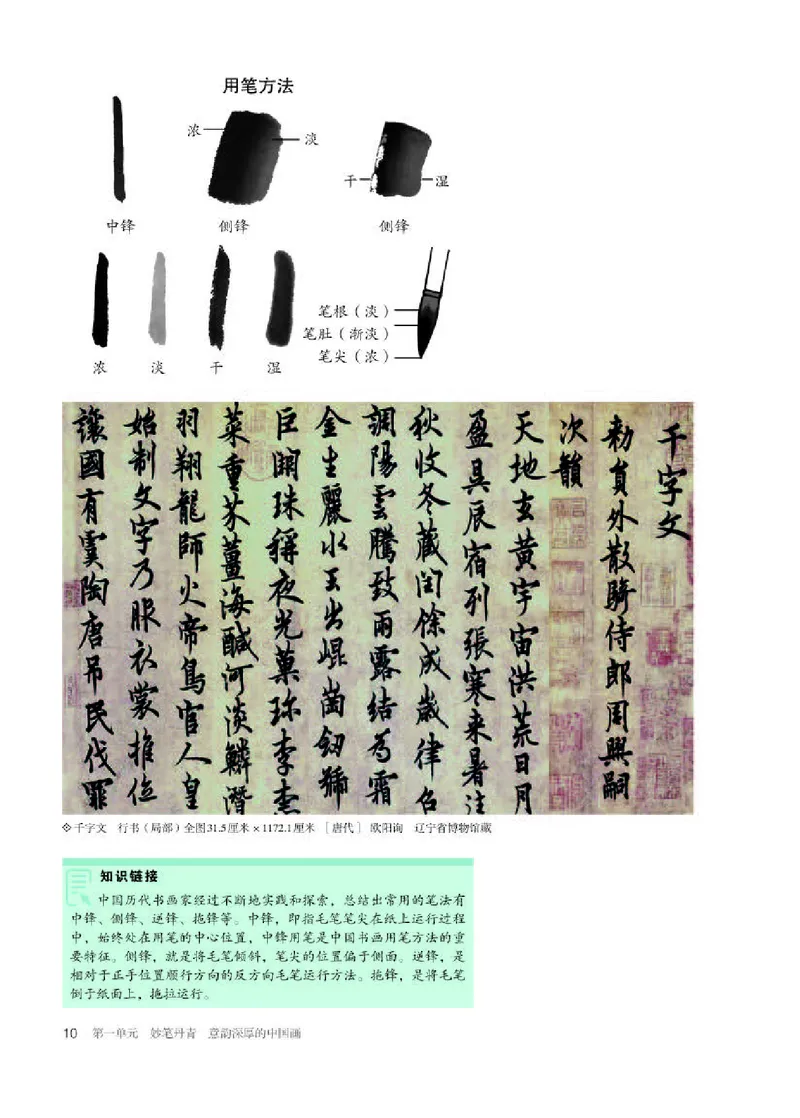 用笔方法
浓
淡
干
湿
中锋
侧锋
侧锋
笔根（淡）
笔肚（渐淡）
笔尖（浓）
浓
淡
干
湿
千字文
勑員外散騎侍郎周興嗣
次韻
天地玄黃宇宙洪荒日月
盈昃辰宿列張寒来暑往
秋收冬藏閏餘成歲律召
調陽雲騰致雨露結為霜
金生麗水玉出崐崗釼號
巨闕珠稱夜光菓珎李柰
菜重芥薑海醎河淡鱗潛
羽翔龍師火帝鳥官人皇
始制文字乃服衣裳推位
讓國有虞陶唐吊民伐罪
千文 行书（局部）全图31.5厘米×1172.1厘米 ［唐代］ 欧阳询 辽宁省博物馆藏
知识链接
中国历代书画家经过不断地实践和探索，总结出常用的笔法有
中锋、侧锋、逆锋、拖锋等。中锋，即指毛笔笔尖在纸上运行过程
中，始终处在用笔的中心位置，中锋用笔是中国书画用笔方法的重
要特征。侧锋，就是将毛笔倾斜，笔尖的位置偏于侧面。逆锋，是
相对于正手位置顺行方向的反方向毛笔运行方法。拖锋，是将毛笔
倒于纸面上，拖拉运行。
10 第一单元 妙笔丹青 意韵深厚的中国画